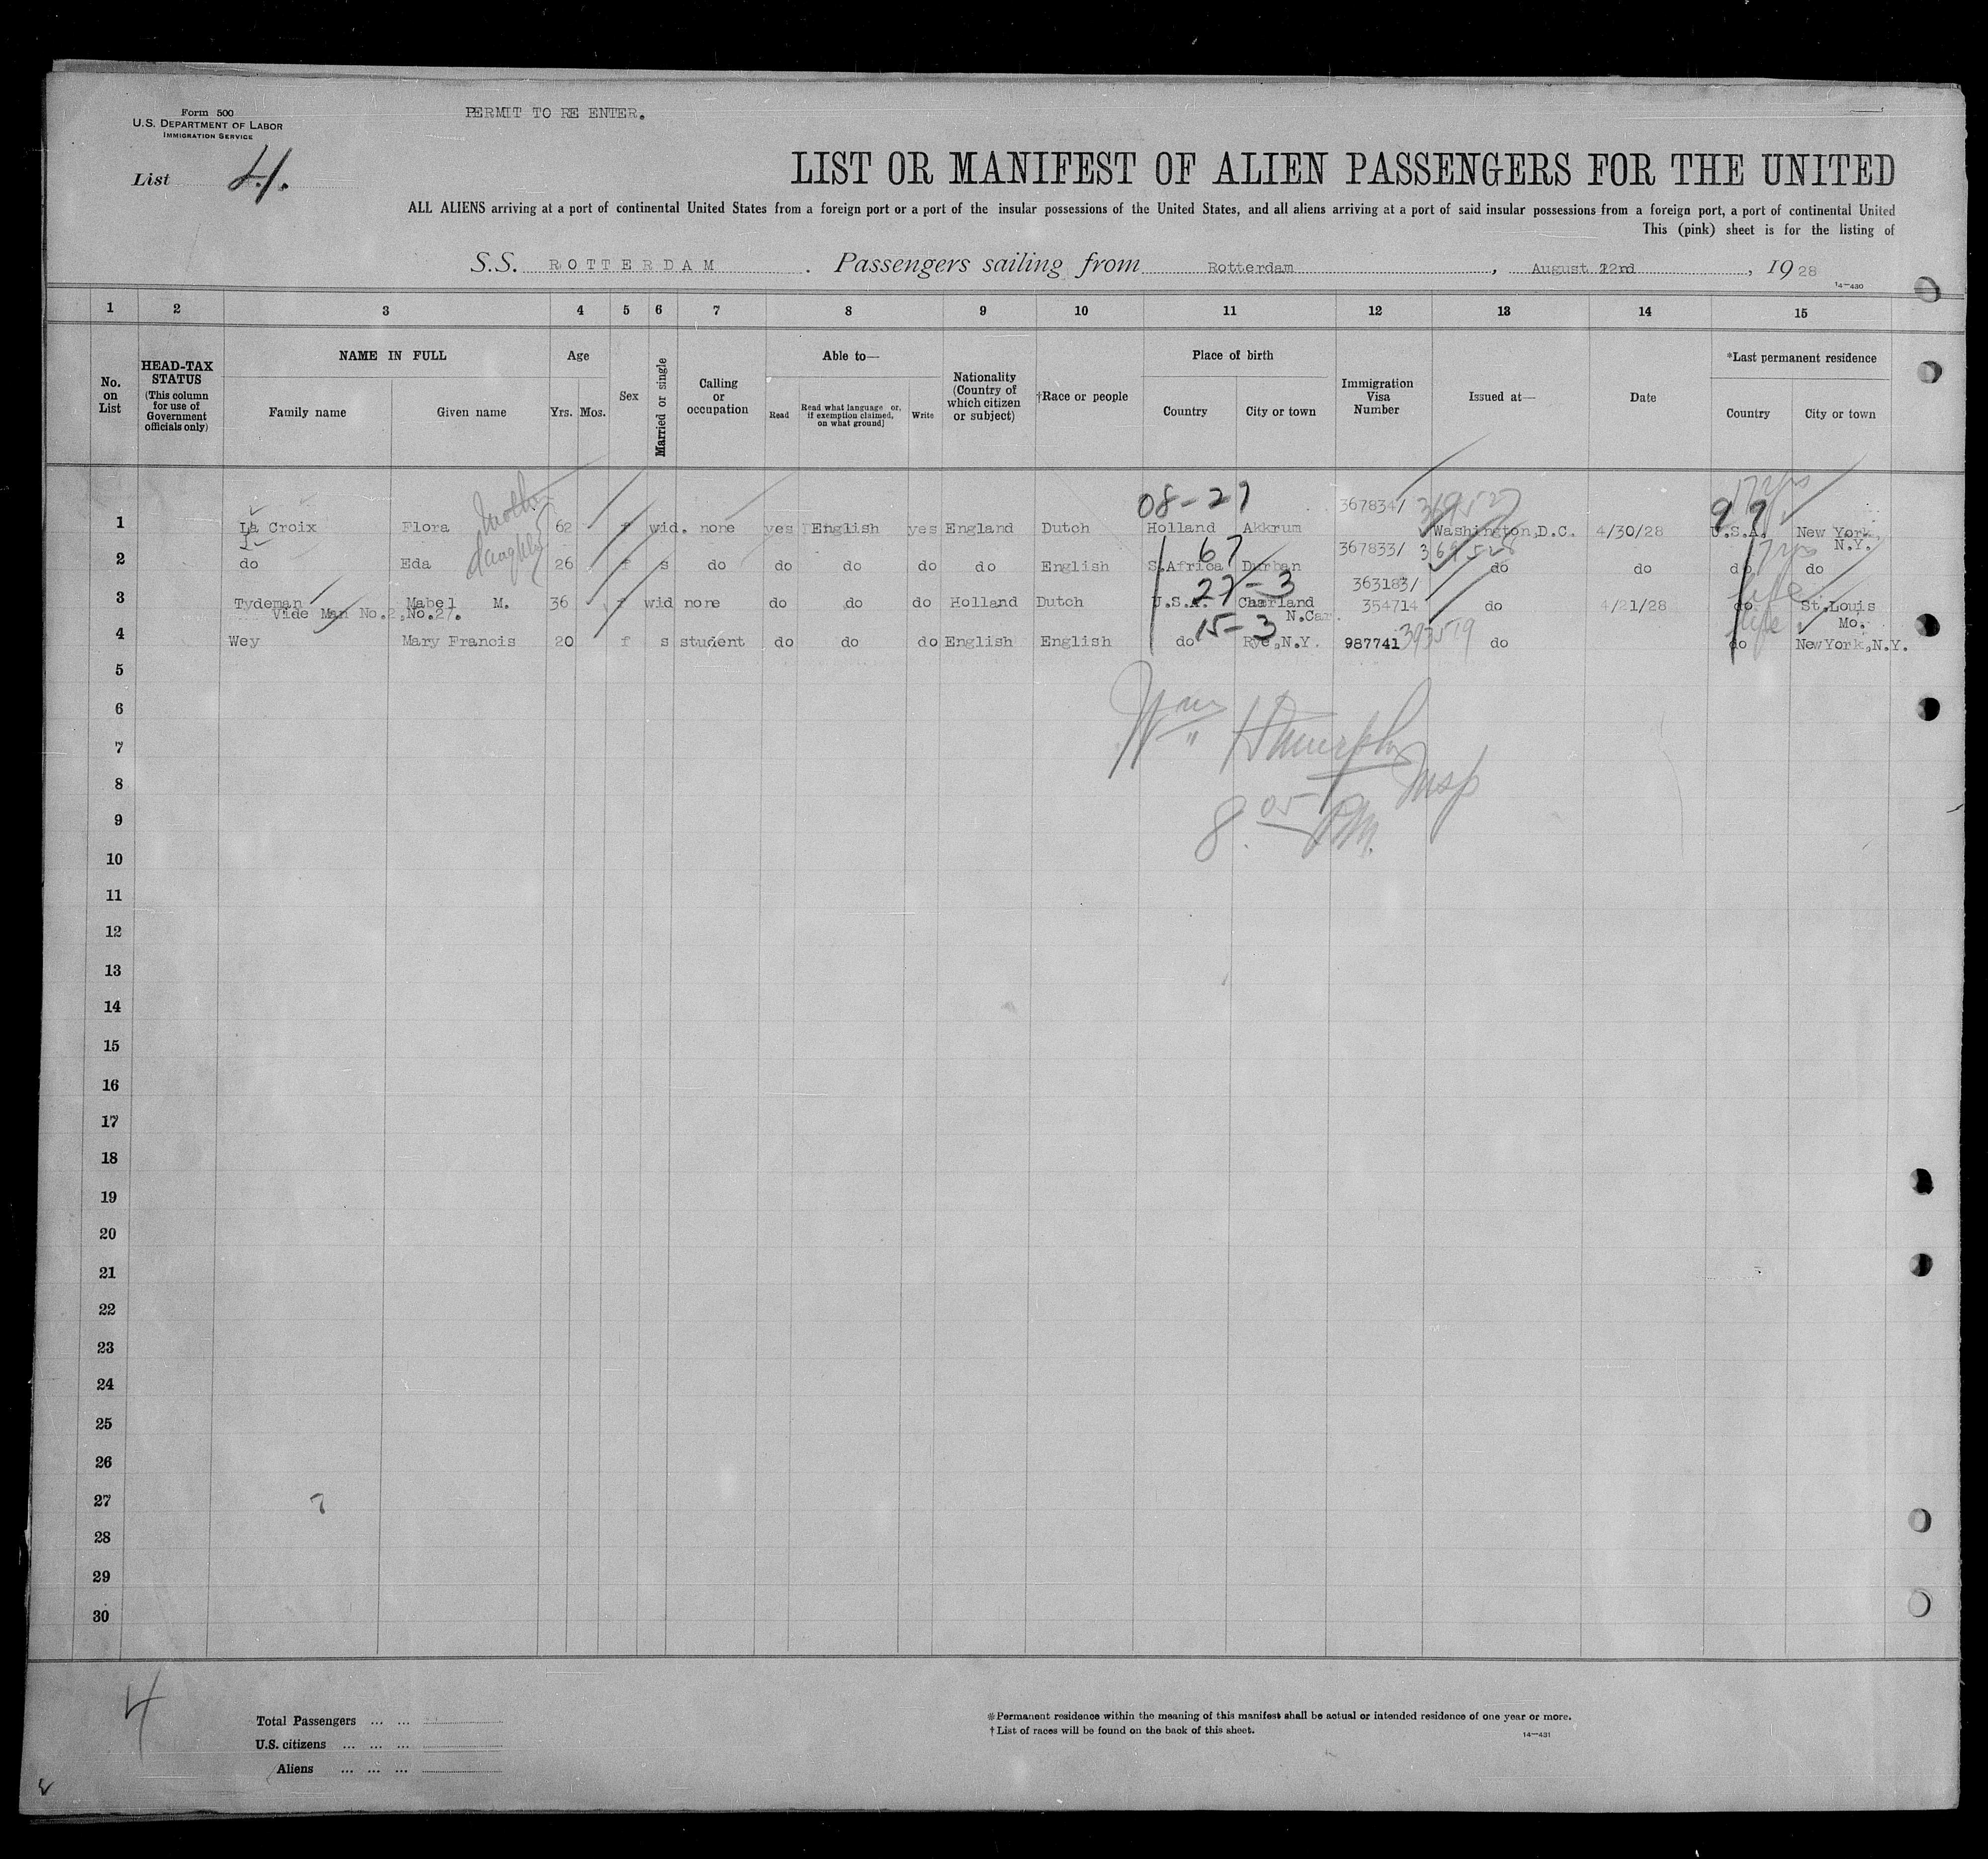 Form 500
U.S. DEPARTMENT OF LABOR
IMMIGRATION SERVICE
PERMIT TO RE ENTER.
List 4.
LIST OR MANIFEST OF ALIEN PASSENGERS FOR THE UNITED
ALL ALIENS arriving at a port of continental United States from a foreign port or a port of the insular possessions of the United States, and all aliens arriving at a port of said insular possessions from a foreign port, a port of continental United
This (pink) sheet is for the listing of
S.S. ROTTERDAM. Passengers sailing from Rotterdam, August 22nd, 1928
14—430
1 2 3 4 5 6 7 8 9 10 11 12 13 14 15
No. on List
HEAD-TAX STATUS
(This column for use of Government officials only)
NAME IN FULL
Family name Given name
Age
Yrs. Mos.
Sex
Married or single
Calling or occupation
Able to—
Read Read what language or, if exemption claimed, on what ground] Write
Nationality (Country of which citizen or subject)
†Race or people
Place of birth
Country City or town
Immigration Visa Number
Issued at—
Date
*Last permanent residence
Country City or town
mother 08-27 367834/ 369527 17 yrs
1 La Croix Flora 62 f wid. none yes English yes England Dutch Holland Akkrum Washington,D.C. 4/30/28 U.S.A. New York,
daughter 67 367833/ 369528 17 yrs N.Y.
2 do Eda 26 f s do do do do do English S.Africa Durban do do do do
27-3 363183/ life
3 Tydeman Mabel M. 36 f wid none do do do Holland Dutch U.S.A. 354714 do 4/21/28 do St.Louis
Vide Man No.2,No.27. N.Car. Mo.
15-3 life
4 Wey Mary Francis 20 f s student do do do English English do Rye,N.Y. 987741 393519 do do NewYork,N.Y.
5
6
Wm H Murphy
7
Insp
8
8.05 PM.
9
10
11
12
13
14
15
16
17
18
19
20
21
22
23
24
25
26
27
28
29
30
4
Total Passengers ... ...
U.S. citizens ... ... ...
Aliens ... ... ...
*Permanent residence within the meaning of this manifest shall be actual or intended residence of one year or more.
†List of races will be found on the back of this sheet.
14—431